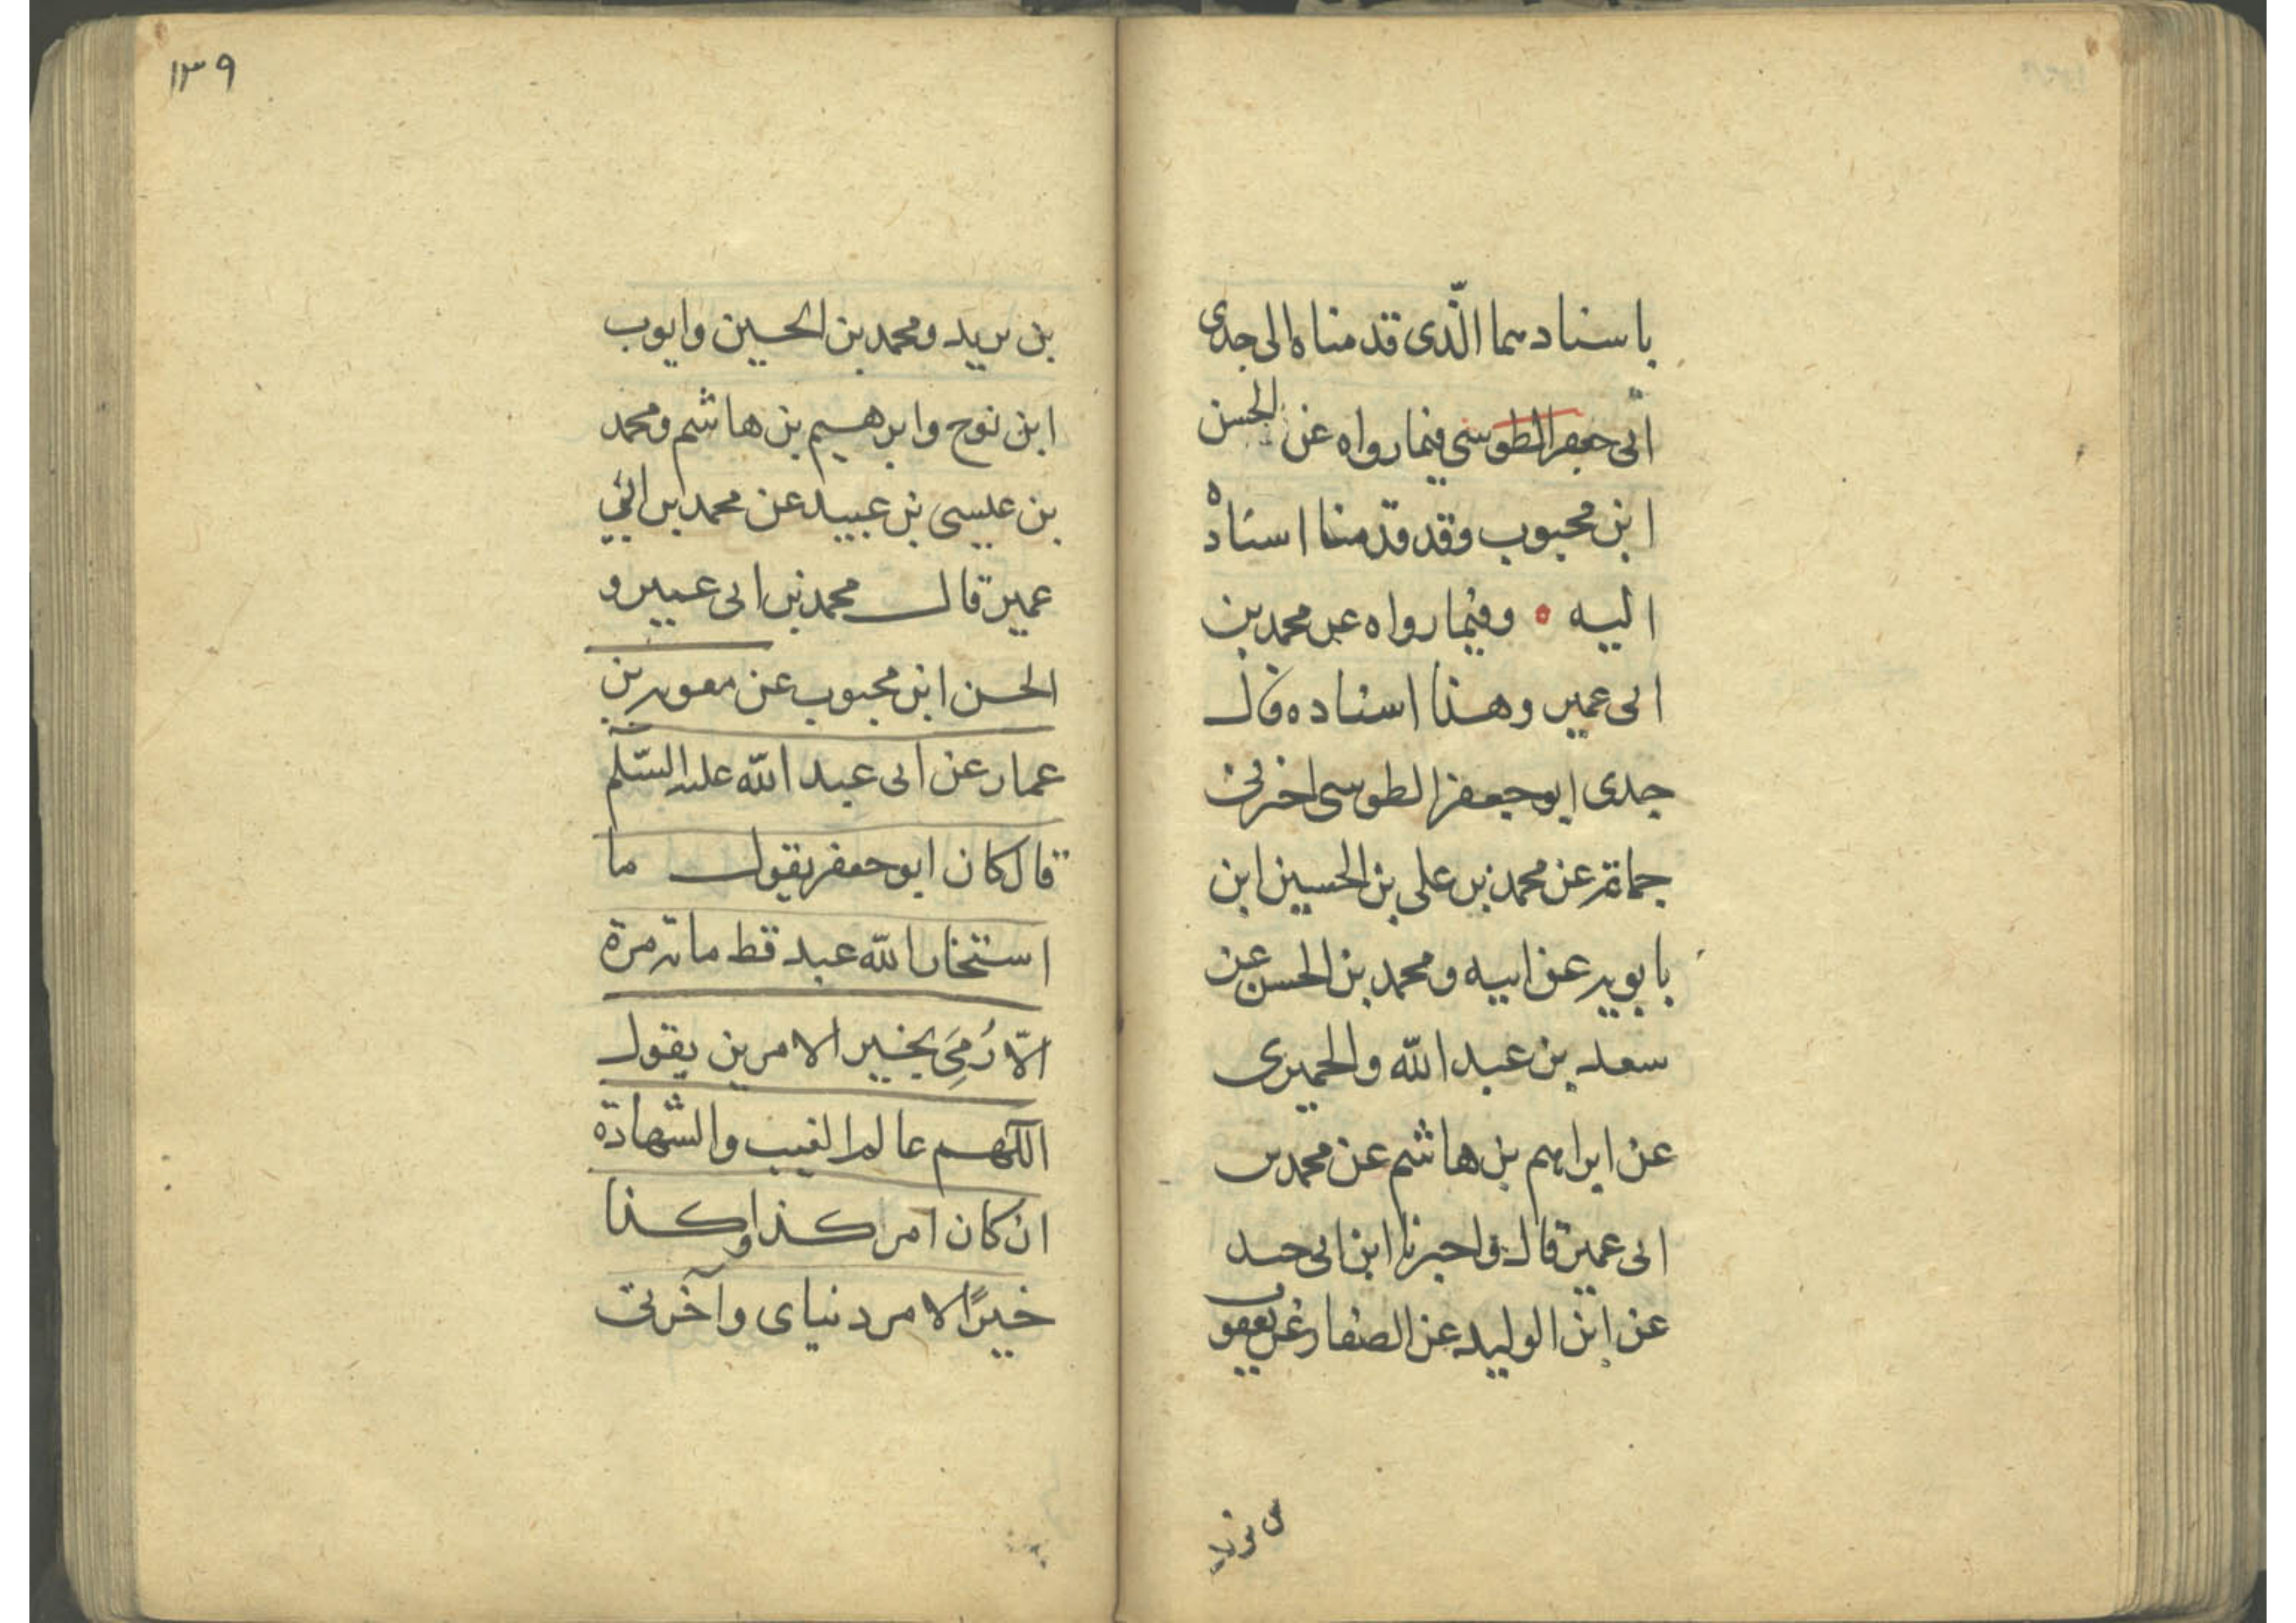 باسنادهما الّذى قدمناه الى جدى
ابى جعفر الطوسي فيما رواه عن الحسن
ابن محبوب وقد قدمنا اسناده
اليه ٥ وفيما رواه عن محمد بن
ابى عمير وهذا اسناده قال
جدى ابو جعفر الطوسى اخبرنى
جماعة عن محمد بن على بن الحسين ابن
بابويه عن ابيه ومحمد بن الحسن عن
سعد بن عبد الله والحميرى
عن ابراهيم بن هاشم عن محمد بن
ابى عمير قال واخبرنا ابن ابى جيد
عن ابن الوليد عن الصفار عن يعقوب
بن يزيد
١٣٩
بن يزيد ومحمد بن الحسين وايوب
ابن نوح وابرهيم بن هاشم ومحمد
بن عيسى بن عبيد عن محمد بن ابي
عمير قال محمد بن ابى عمير و
الحسن ابن محبوب عن معوية بن
عمار عن ابى عبد الله عليه السّلم
قال كان ابو جعفر يقول ما
استخار الله عبد قط مائة مرة
الّا رُمِيَ بخير الامرين يقول
اللّهم عالم الغيب والشّهادة
ان كان امر كذا وكذا
خيرًا لامر دنياى وآخرتى